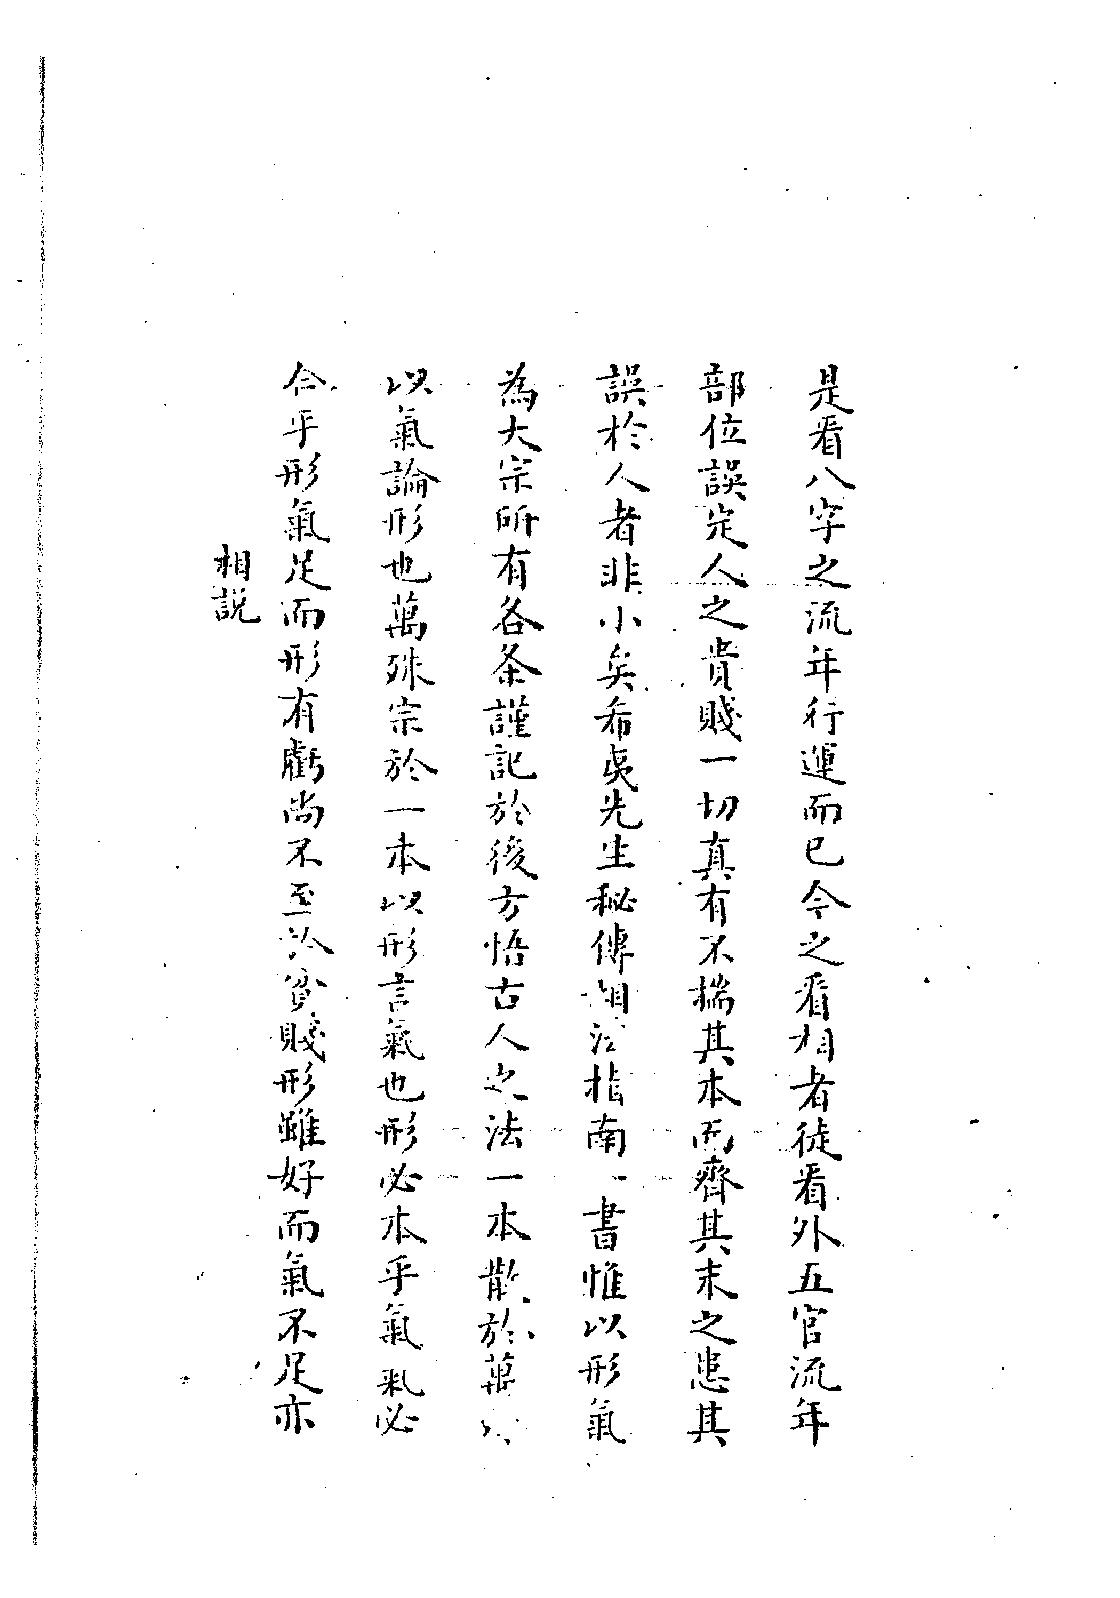 是看八字之流年行運而已今之看相者徒看外五官流年
部位誤定人之貴賤一切真有不揣其本而齊其末之患其
誤於人者非小矣希夷先生秘傳相法指南一書惟以形氣
為大宗所有各条謹記於後方悟古人之法一本散於萬
以氣論形也萬殊宗於一本以形言氣也形必本乎氣氣必
合乎形氣足而形有虧尚不至於貧賤形雖好而氣不足亦
相説